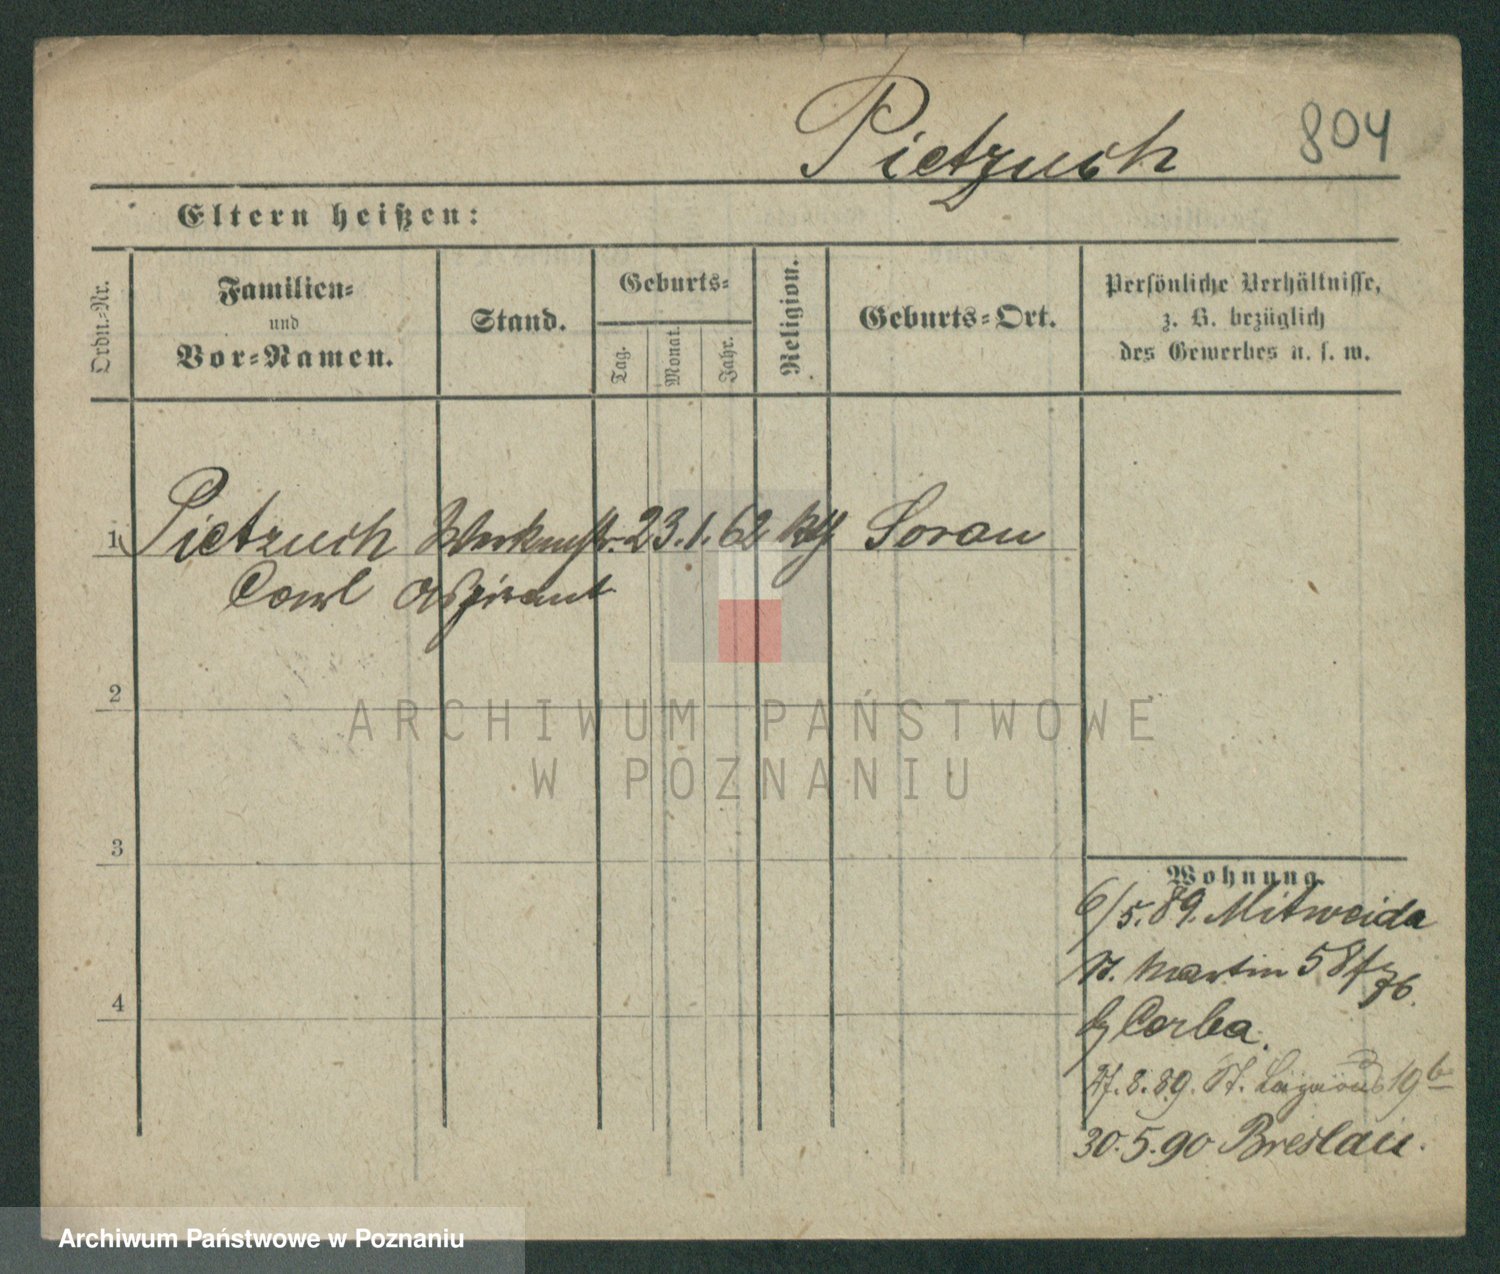 Pietzuch 804
Eltern heißen:
Ordn.-Nr.
Familien-
und
Vor-Namen.
Stand.
Geburts-
Tag.
Monat.
Jahr.
Religion.
Geburts-Ort.
Persönliche Verhältnisse,
z. B. bezüglich
des Gewerbes u. s. w.
1 Pietzuch Werkmstr. 23. 1. 62 kth Sorau
Carl Aspirant
2
ARCHIWUM PAŃSTWOWE
W POZNANIU
3
4
Wohnung.
6/5. 89. Mitweida
St. Martin 58
Corba.
27. 8. 89. St. Lazarus 19b
30. 5. 90 Breslau.
Archiwum Państwowe w Poznaniu